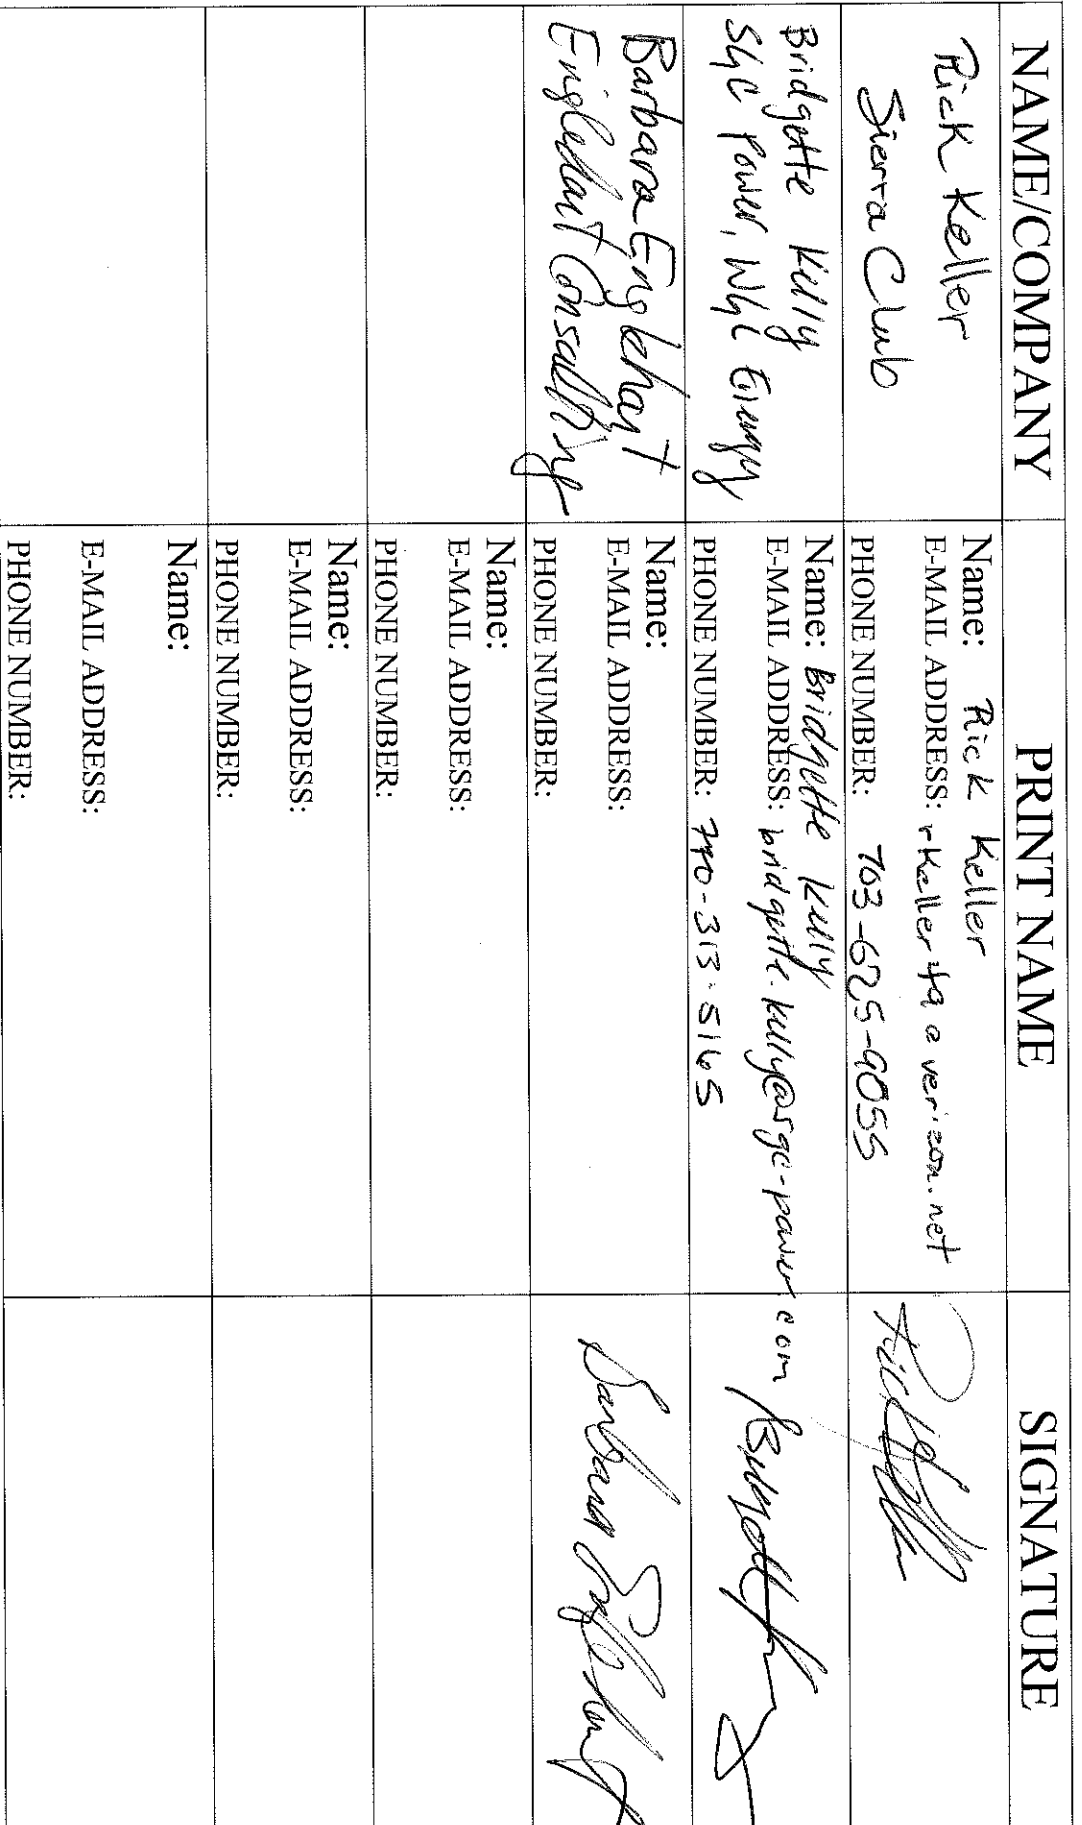 NAME/COMPANY PRINT NAME SIGNATURE
Rick Keller
Sierra Club
Name: Rick Keller
E-MAIL ADDRESS: rkeller49@verizon.net
PHONE NUMBER: 703-625-9055
Bridgette Kelly
SGC Power, WGL Energy
Name: Bridgette Kelly
E-MAIL ADDRESS: bridgette.kelly@sgc-power.com
PHONE NUMBER: 740-313-5165
Barbara Englehart
Englehart Consulting
Name:
E-MAIL ADDRESS:
PHONE NUMBER:
Barbara Englehart
Name:
E-MAIL ADDRESS:
PHONE NUMBER:
Name:
E-MAIL ADDRESS:
PHONE NUMBER:
Name:
E-MAIL ADDRESS:
PHONE NUMBER: